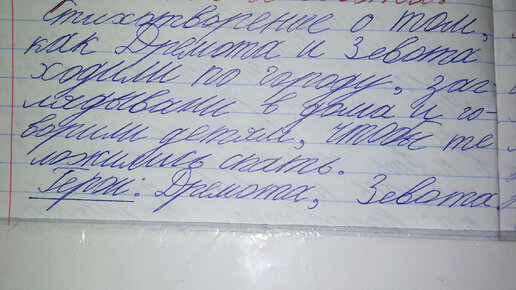 Стихотворение о том,
как Дремота и Зевота
ходили по городу, заг-
лядывали в дома и го-
ворили детям, чтобы те
ложились спать.
Герои: Дремота, Зевота.